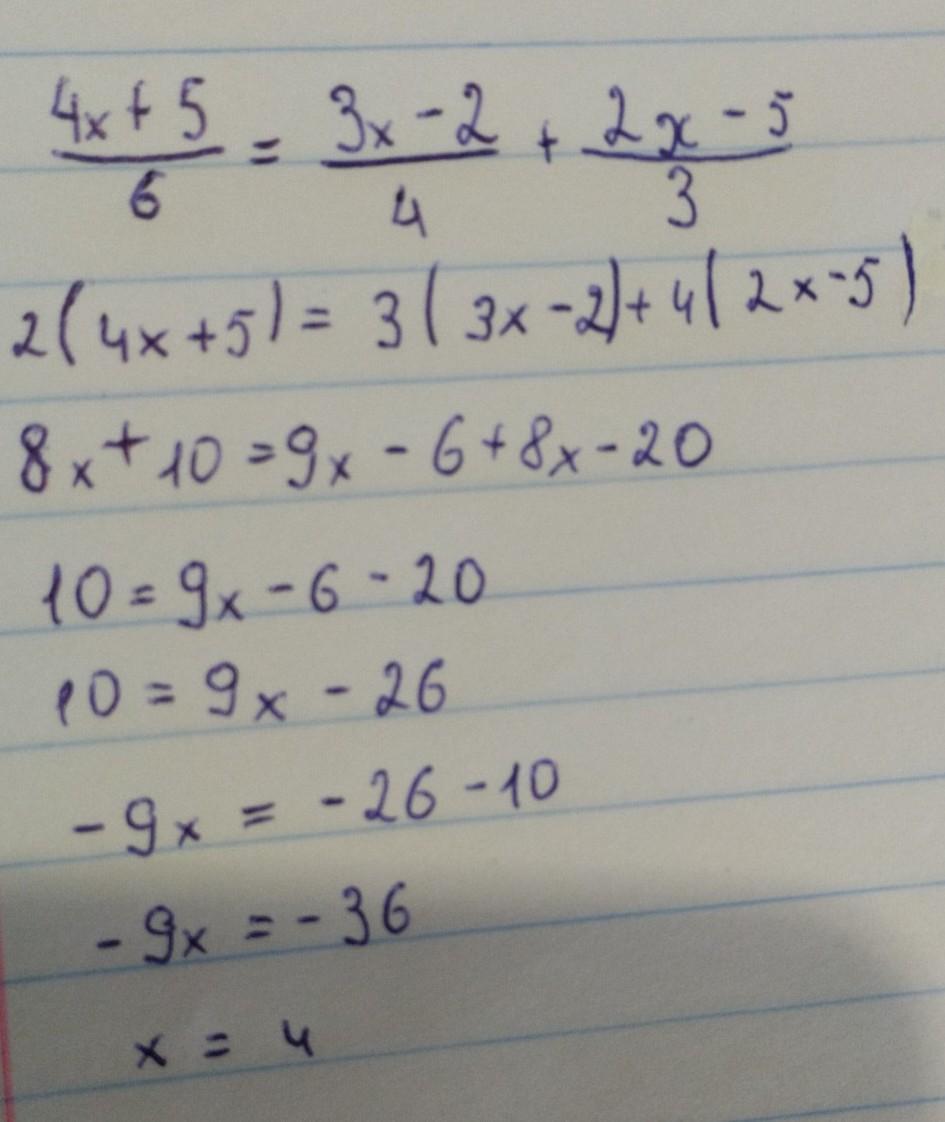 4x + 5 / 6 = 3x - 2 / 4 + 2x - 5 / 3
2(4x+5) = 3(3x-2)+4(2x-5)
8x+10=9x-6+8x-20
10=9x-6-20
10=9x-26
-9x=-26-10
-9x=-36
x=4